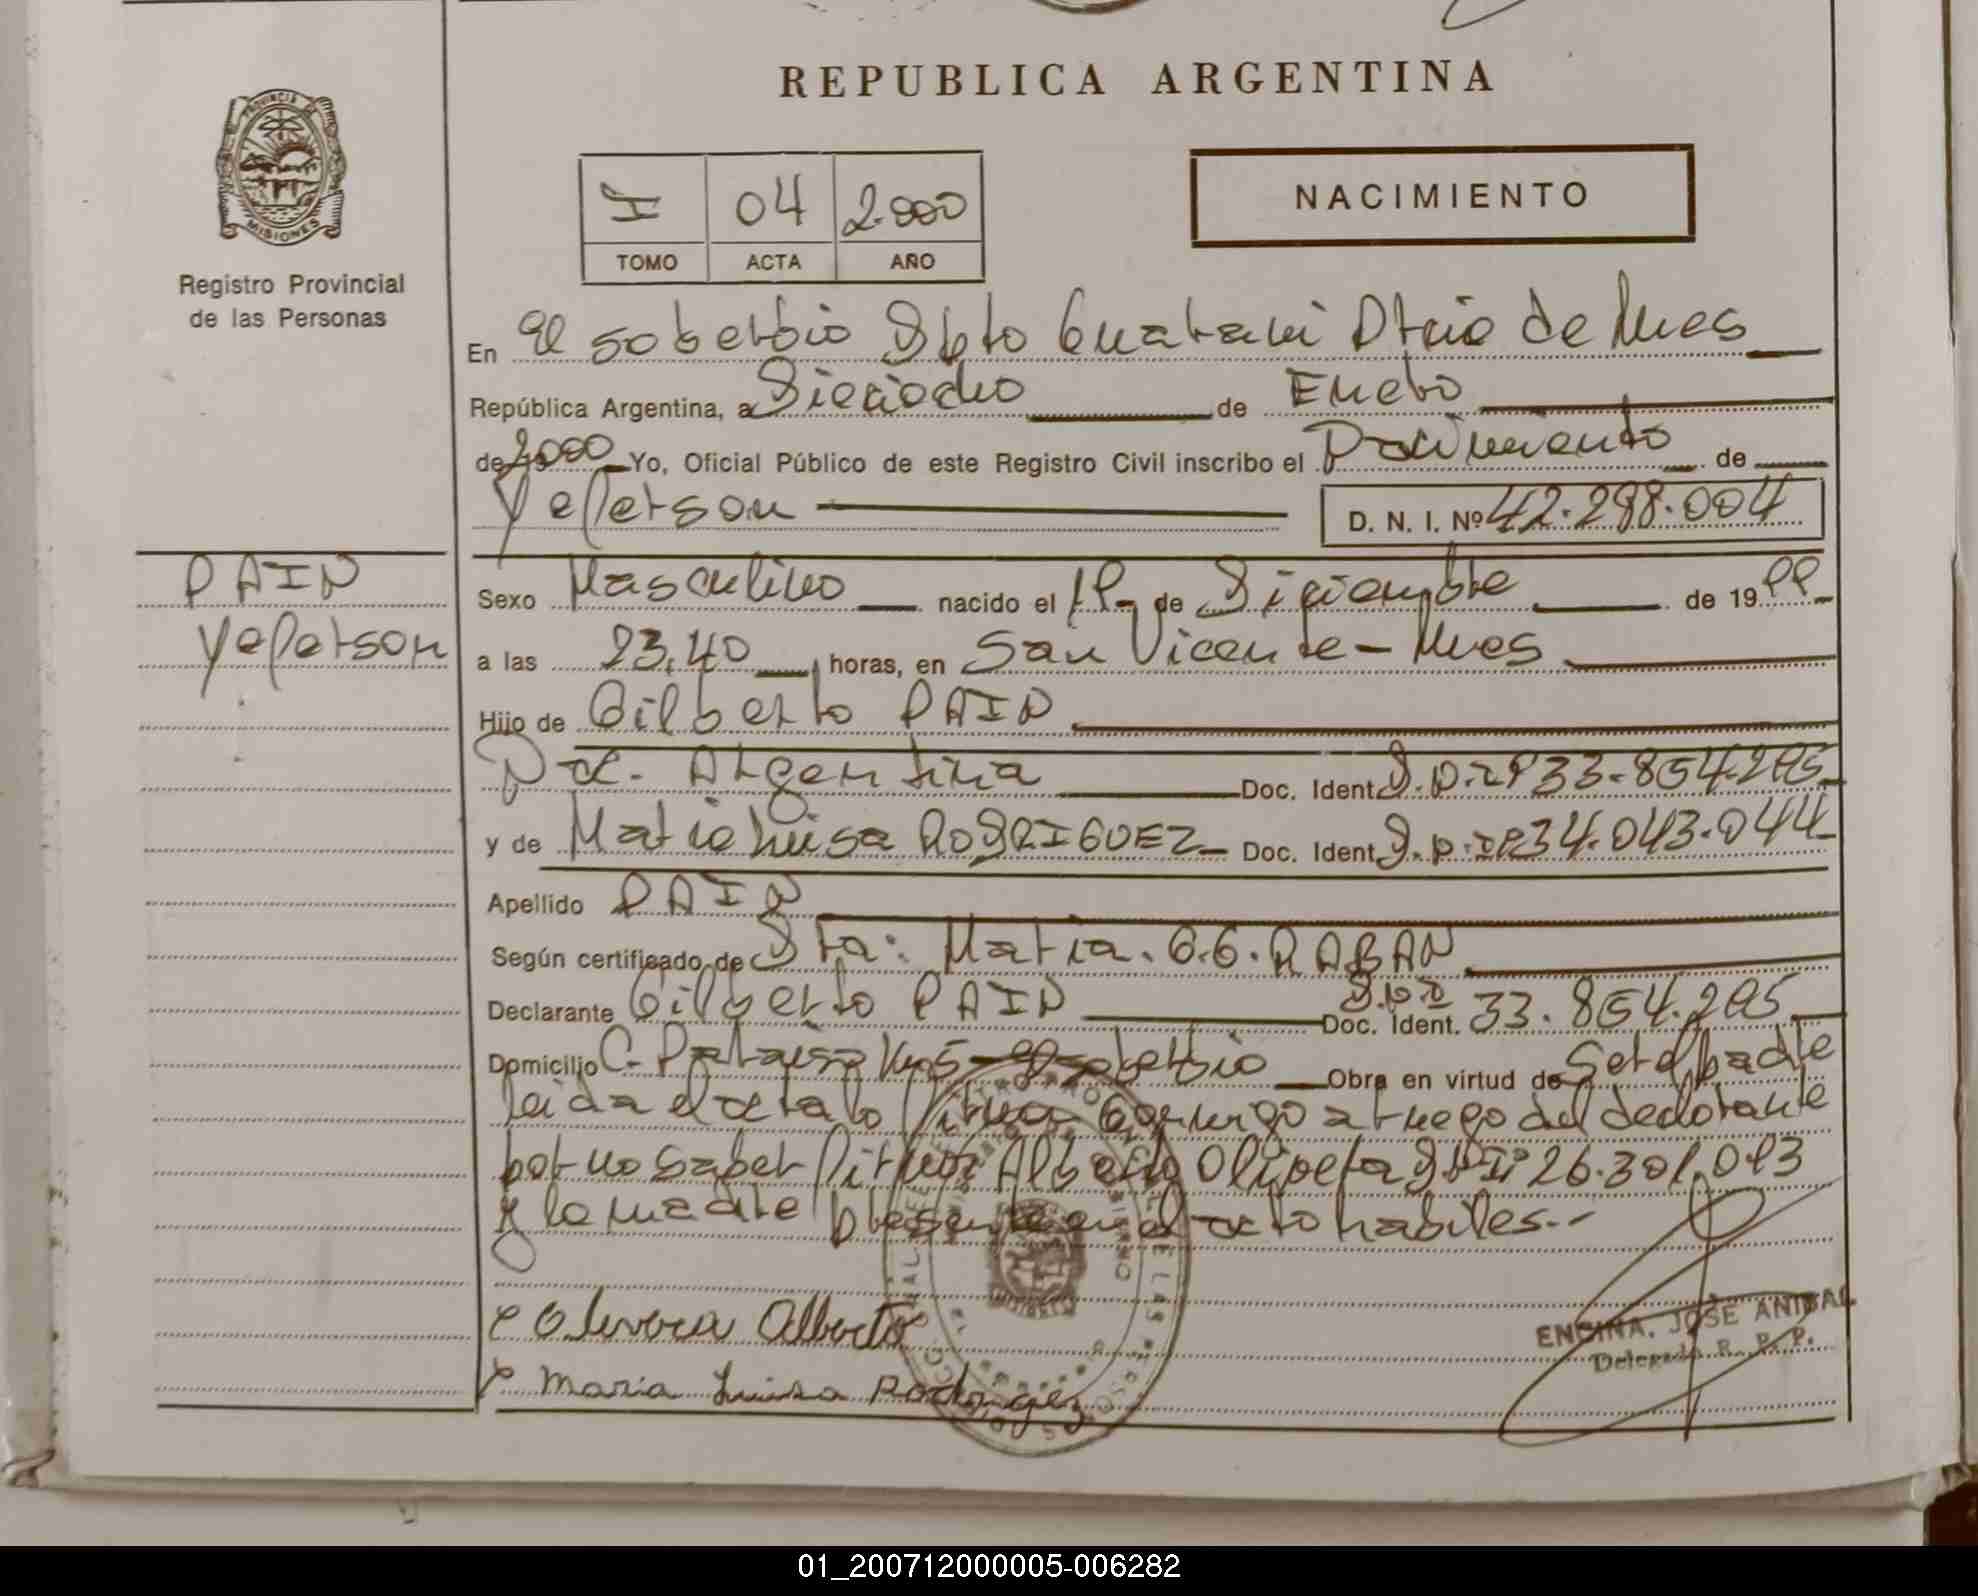 REPUBLICA ARGENTINA
PROVINCIA DE MISIONES
Registro Provincial
de las Personas
I 04 2.000
TOMO ACTA AÑO
NACIMIENTO
En El soberbio Dpto Guarani Pcia de Mnes
República Argentina, a Dieciocho de Enero
de 2000 Yo, Oficial Público de este Registro Civil inscribo el Nacimiento de
Yeferson D. N. I. Nº 42.298.004
PAIN
Yeferson
Sexo Masculino nacido el 19 de Diciembre de 1999
a las 23,40 horas, en San Vicente - Mnes
Hijo de Gilberto PAIN
Nac. Argentina Doc. Ident. D.N.I Nº 33.854.295
y de Maria Luisa RODRIGUEZ Doc. Ident. D.N.I Nº 34.043.044
Apellido PAIN
Según certificado de Dra: Maria. G.G. RABAN
Declarante Gilberto PAIN D.N.I Doc. Ident. 33.854.295
Domicilio C. Paraiso Km5 El soberbio Obra en virtud de Ser el padre
leida el acta lo firma conmigo a ruego del declarante
por no saber firmar Alberto Olivera DNI Nº 26.301.093
y la madre presente en el acto habiles.-
Olivera Alberto
Maria Luisa Rodriguez
ENCINA, JOSE ANIBAL
Delegado R. P. P.
01_200712000005-006282